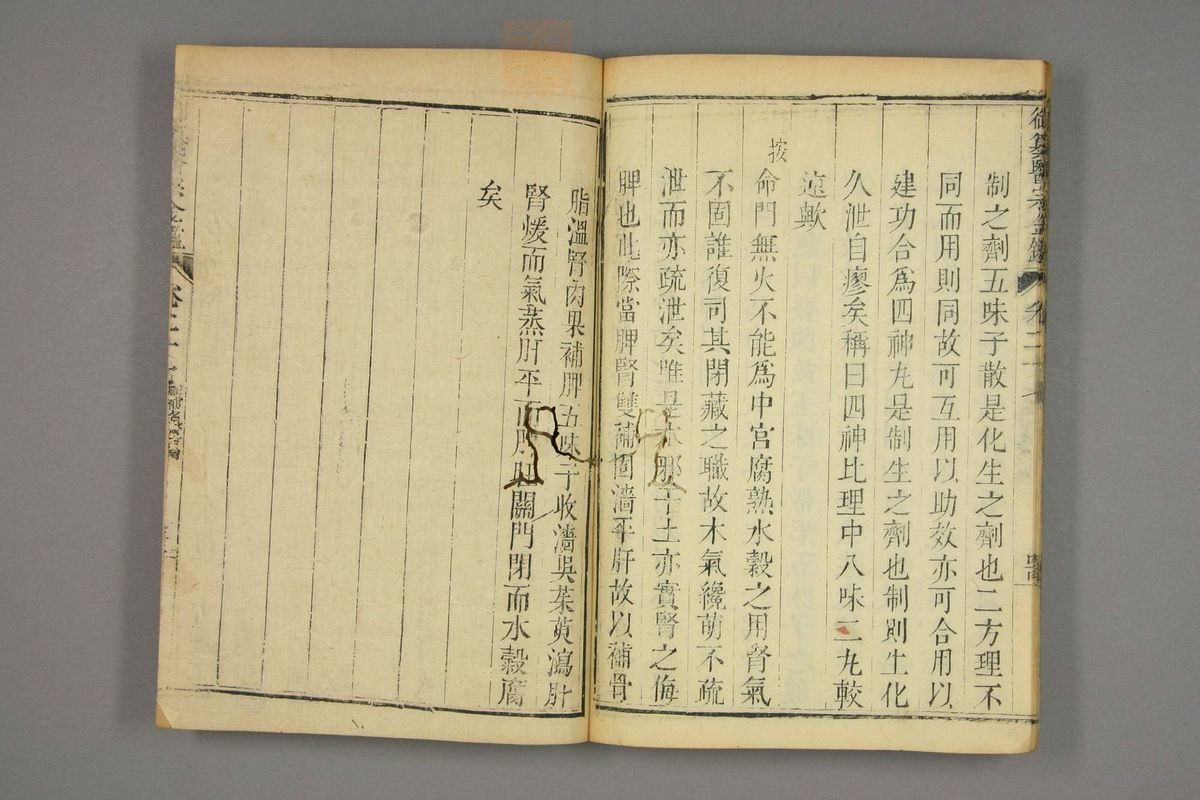 御纂醫宗金鑑
卷二十七
制之劑五味子散是化生之劑也二方理不
同而用則同故可互用以助效亦可合用以
建功合為四神九是制生之劑也制則生化
久泄自瘳矣稱曰四神比理中八味二九較
速歟
按
命門無火不能為中宮腐熟水穀之用腎氣
不固誰復司其閉藏之職故木氣纔萌不疏
泄而亦疏泄矣雖是木邪子土亦實腎之侮
脾也此際當脾腎雙補固濇平肝故以補骨
脂溫腎肉果補脾五味子收濇吳茱萸瀉肝
腎煖而氣蒸肝平而脾旺關門閉而水穀腐
矣